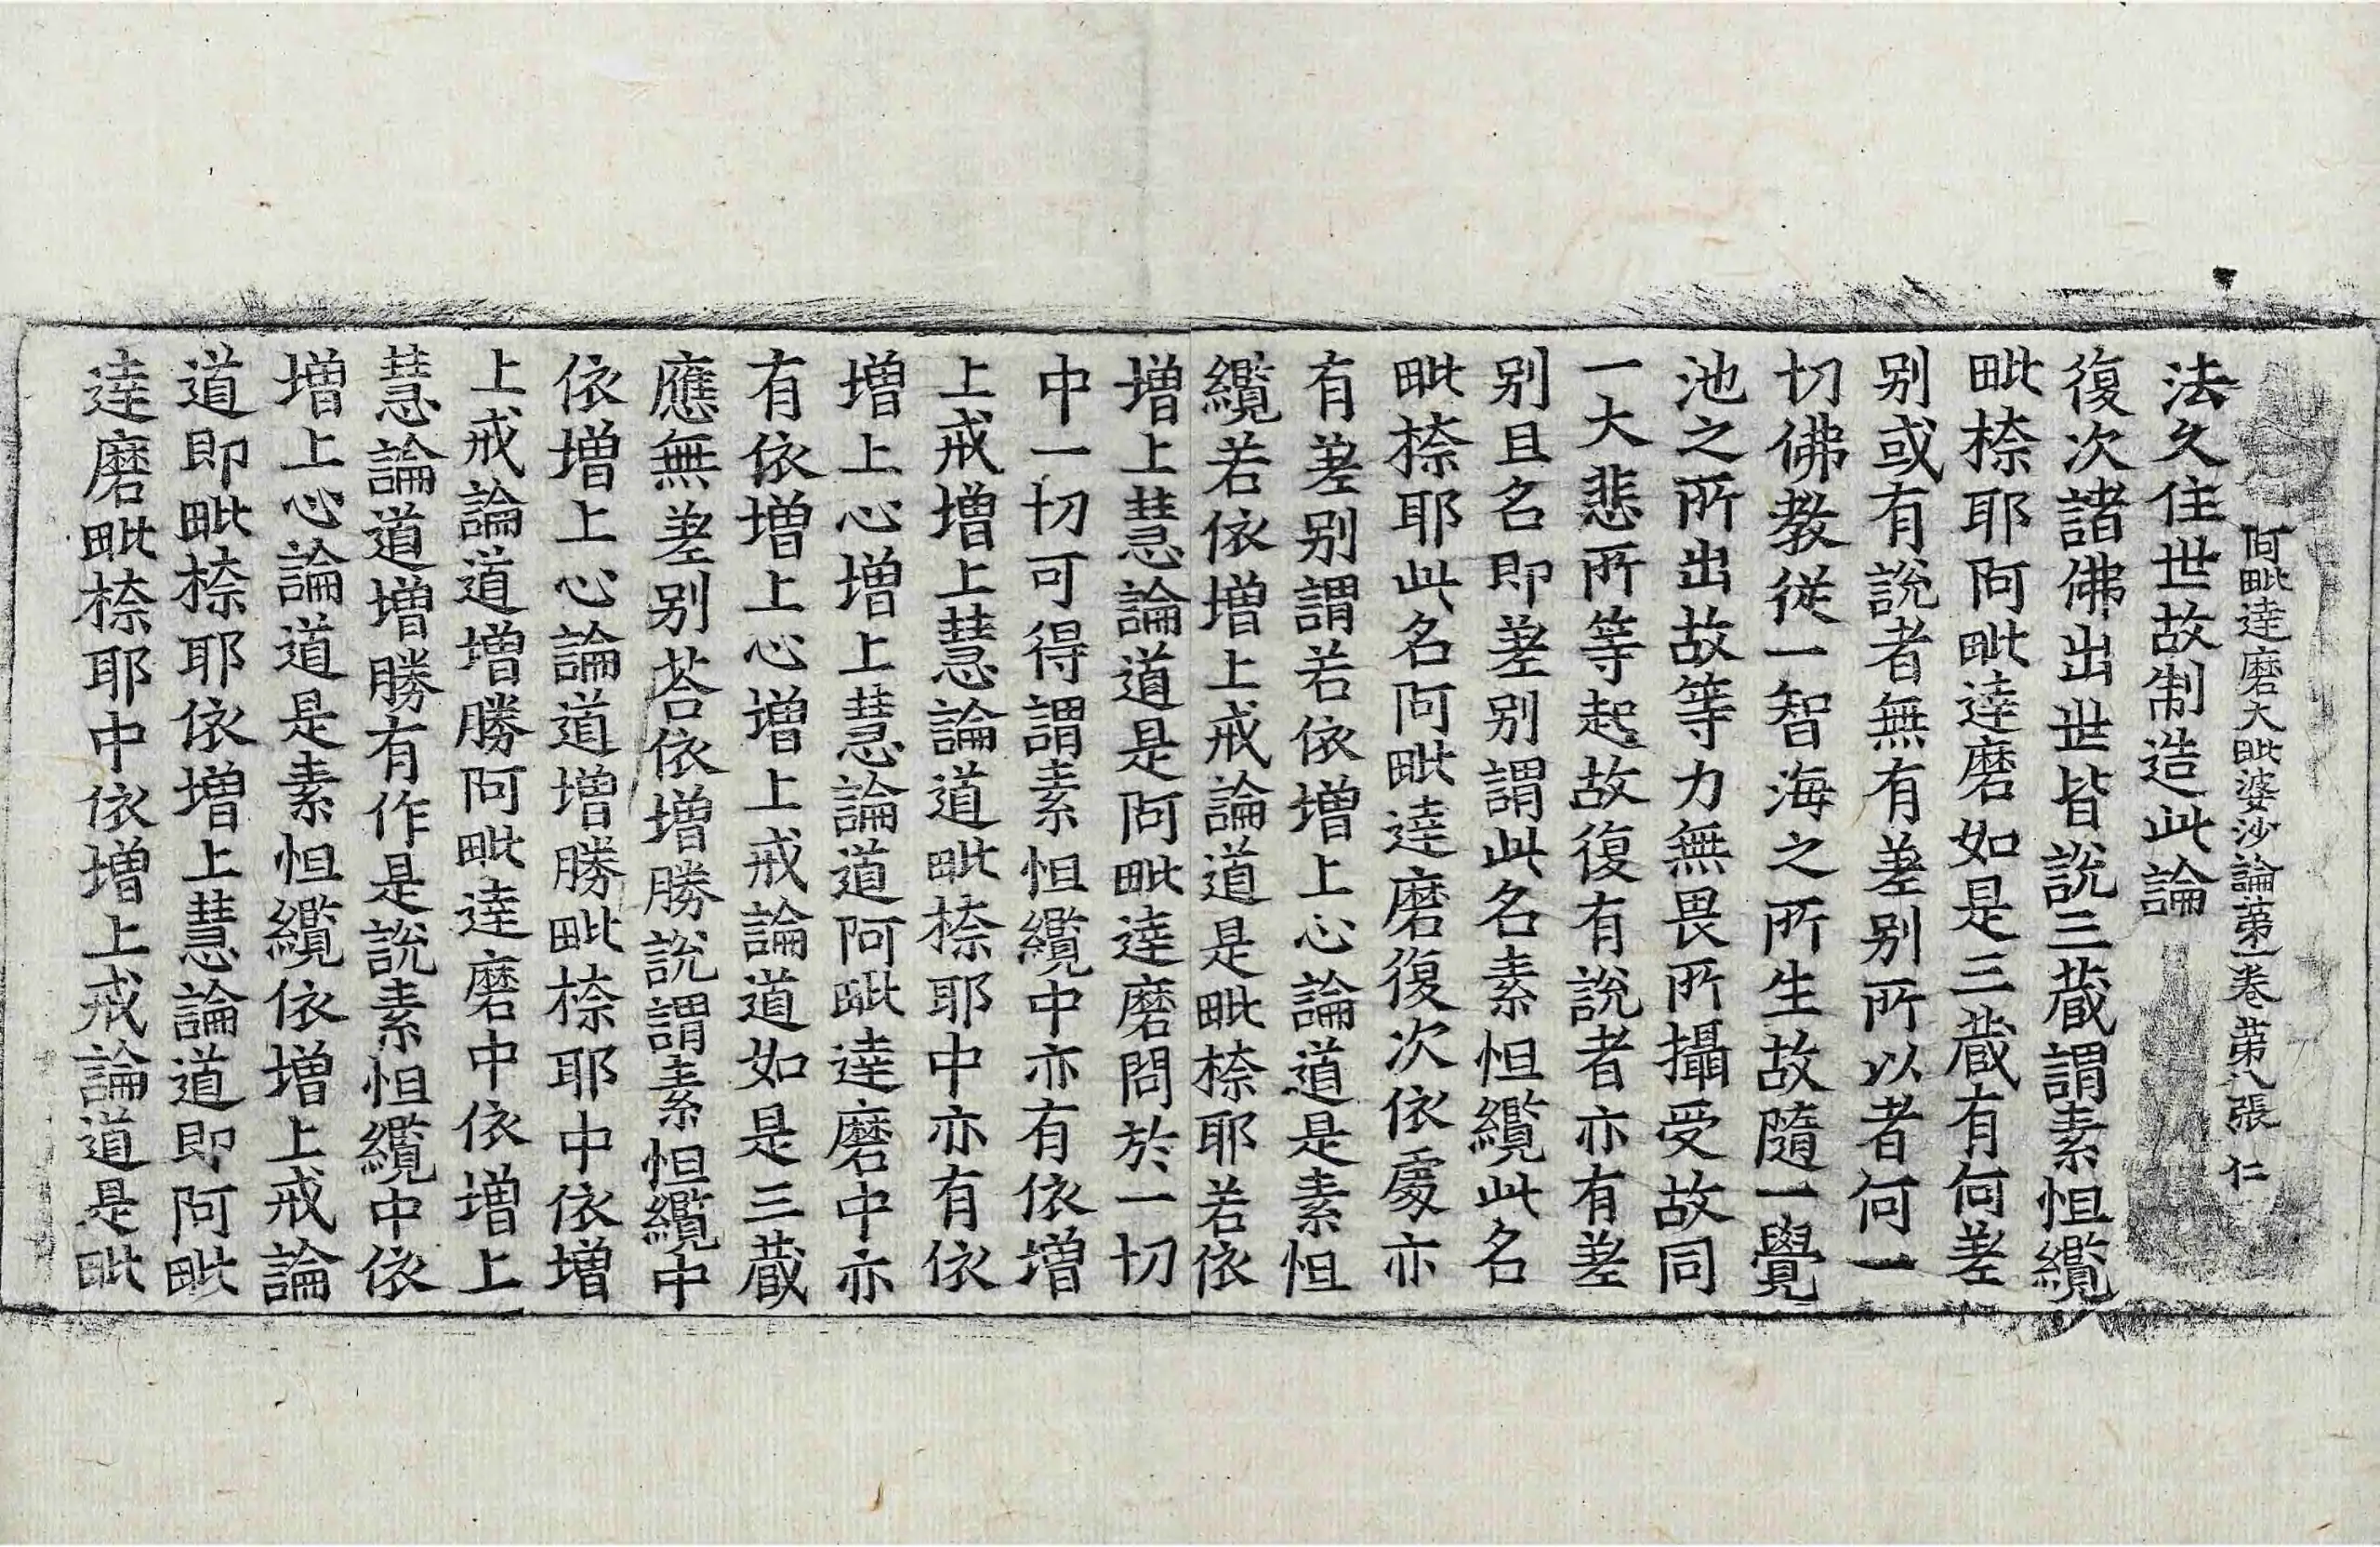 阿毗達磨大毗婆沙論第一卷 第八張 仁
法久住世故制造此論
復次諸佛出世皆說三藏謂素怛纜
毗柰耶阿毗達磨如是三藏有何差
別或有說者無有差別所以者何一
切佛教從一智海之所生故隨一覺
池之所出故等力無畏所攝受故同
一大悲所等起故復有說者亦有差
別且名即差別謂此名素怛纜此名
毗柰耶此名阿毗達磨復次依處亦
有差別謂若依增上心論道是素怛
纜若依增上戒論道是毗柰耶若依
增上慧論道是阿毗達磨問於一切
中一切可得謂素怛纜中亦有依增
上戒增上慧論道毗柰耶中亦有依
增上心增上慧論道阿毗達磨中亦
有依增上心增上戒論道如是三藏
應無差別荅依增勝說謂素怛纜中
依增上心論道增勝毗柰耶中依增
上戒論道增勝阿毗達磨中依增上
慧論道增勝有作是說素怛纜中依
增上心論道是素怛纜依增上戒論
道即毗柰耶依增上慧論道即阿毗
達磨毗柰耶中依增上戒論道是毗